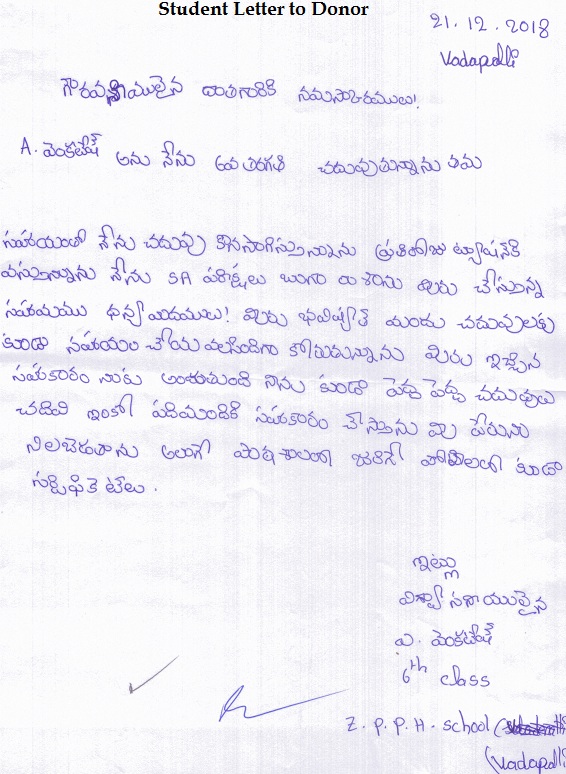 Student Letter to Donor
21.12.2018
Vadapalli
గౌరవనీయులైన దాతగారికి నమస్కారములు!
A. వెంకటేష్ అను నేను 6వ తరగతి చదువుతున్నాను తమ
సహయంతో నేను చదువు కొనసాగిస్తున్నాను ప్రతిరోజు ట్యూషన్‌కి
వస్తున్నాను నేను SA పరిక్షలు బాగా రాశాను మీరు చేస్తున్న
సహయము ధన్యవాదములు! మీరు భవిష్యత్ ముందు చదువులకు
కుడా సహయం చేయ వలసిందిగా కోరుచున్నాను మీరు ఇచ్చిన
సహకారం నాకు అందుతుంది నేను కుడా పెద్ద పెద్ద చదువులు
చదివి ఇంకో పదిమందికి సహకారం చేస్తాను మీ పేరును
నిలబెడుతాను అలాగే పాఠశాలలో జరిగే పోటిలలో కుడా
సర్టిఫికెటేలు.
ఇట్లు
విశ్వాసనీయులైన
ఎ. వెంకటేష్
6th class
Z.P.P.H. school
(Vadapalli